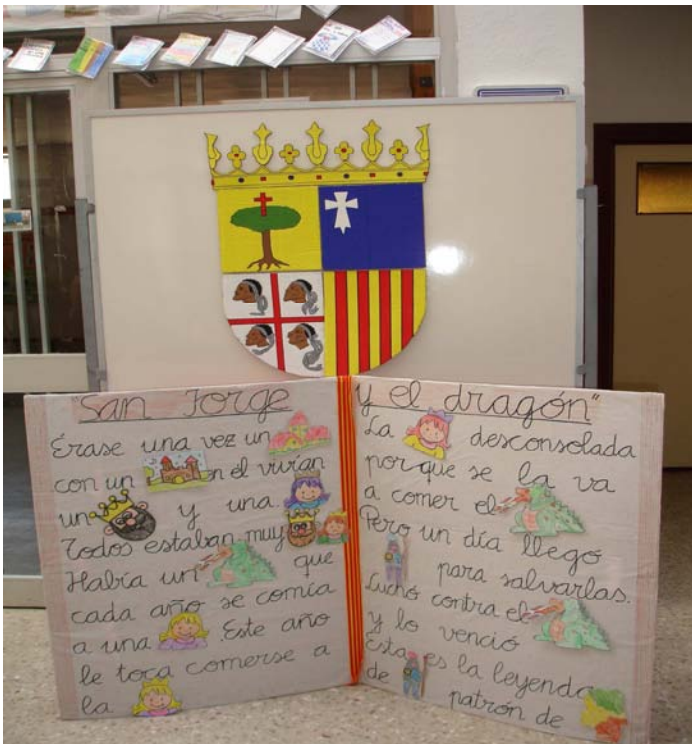 "San Jorge
Érase una vez un
con un en el vivían
un y una
Todos estaban muy
Había un que
cada año se comía
a una Este año
le toca comerse a
la
y el dragón"
La desconsolada
porque se la va
a comer el
Pero un día llegó
para salvarlas.
Luchó contra el
y lo venció
Esta es la leyenda
de patrón de